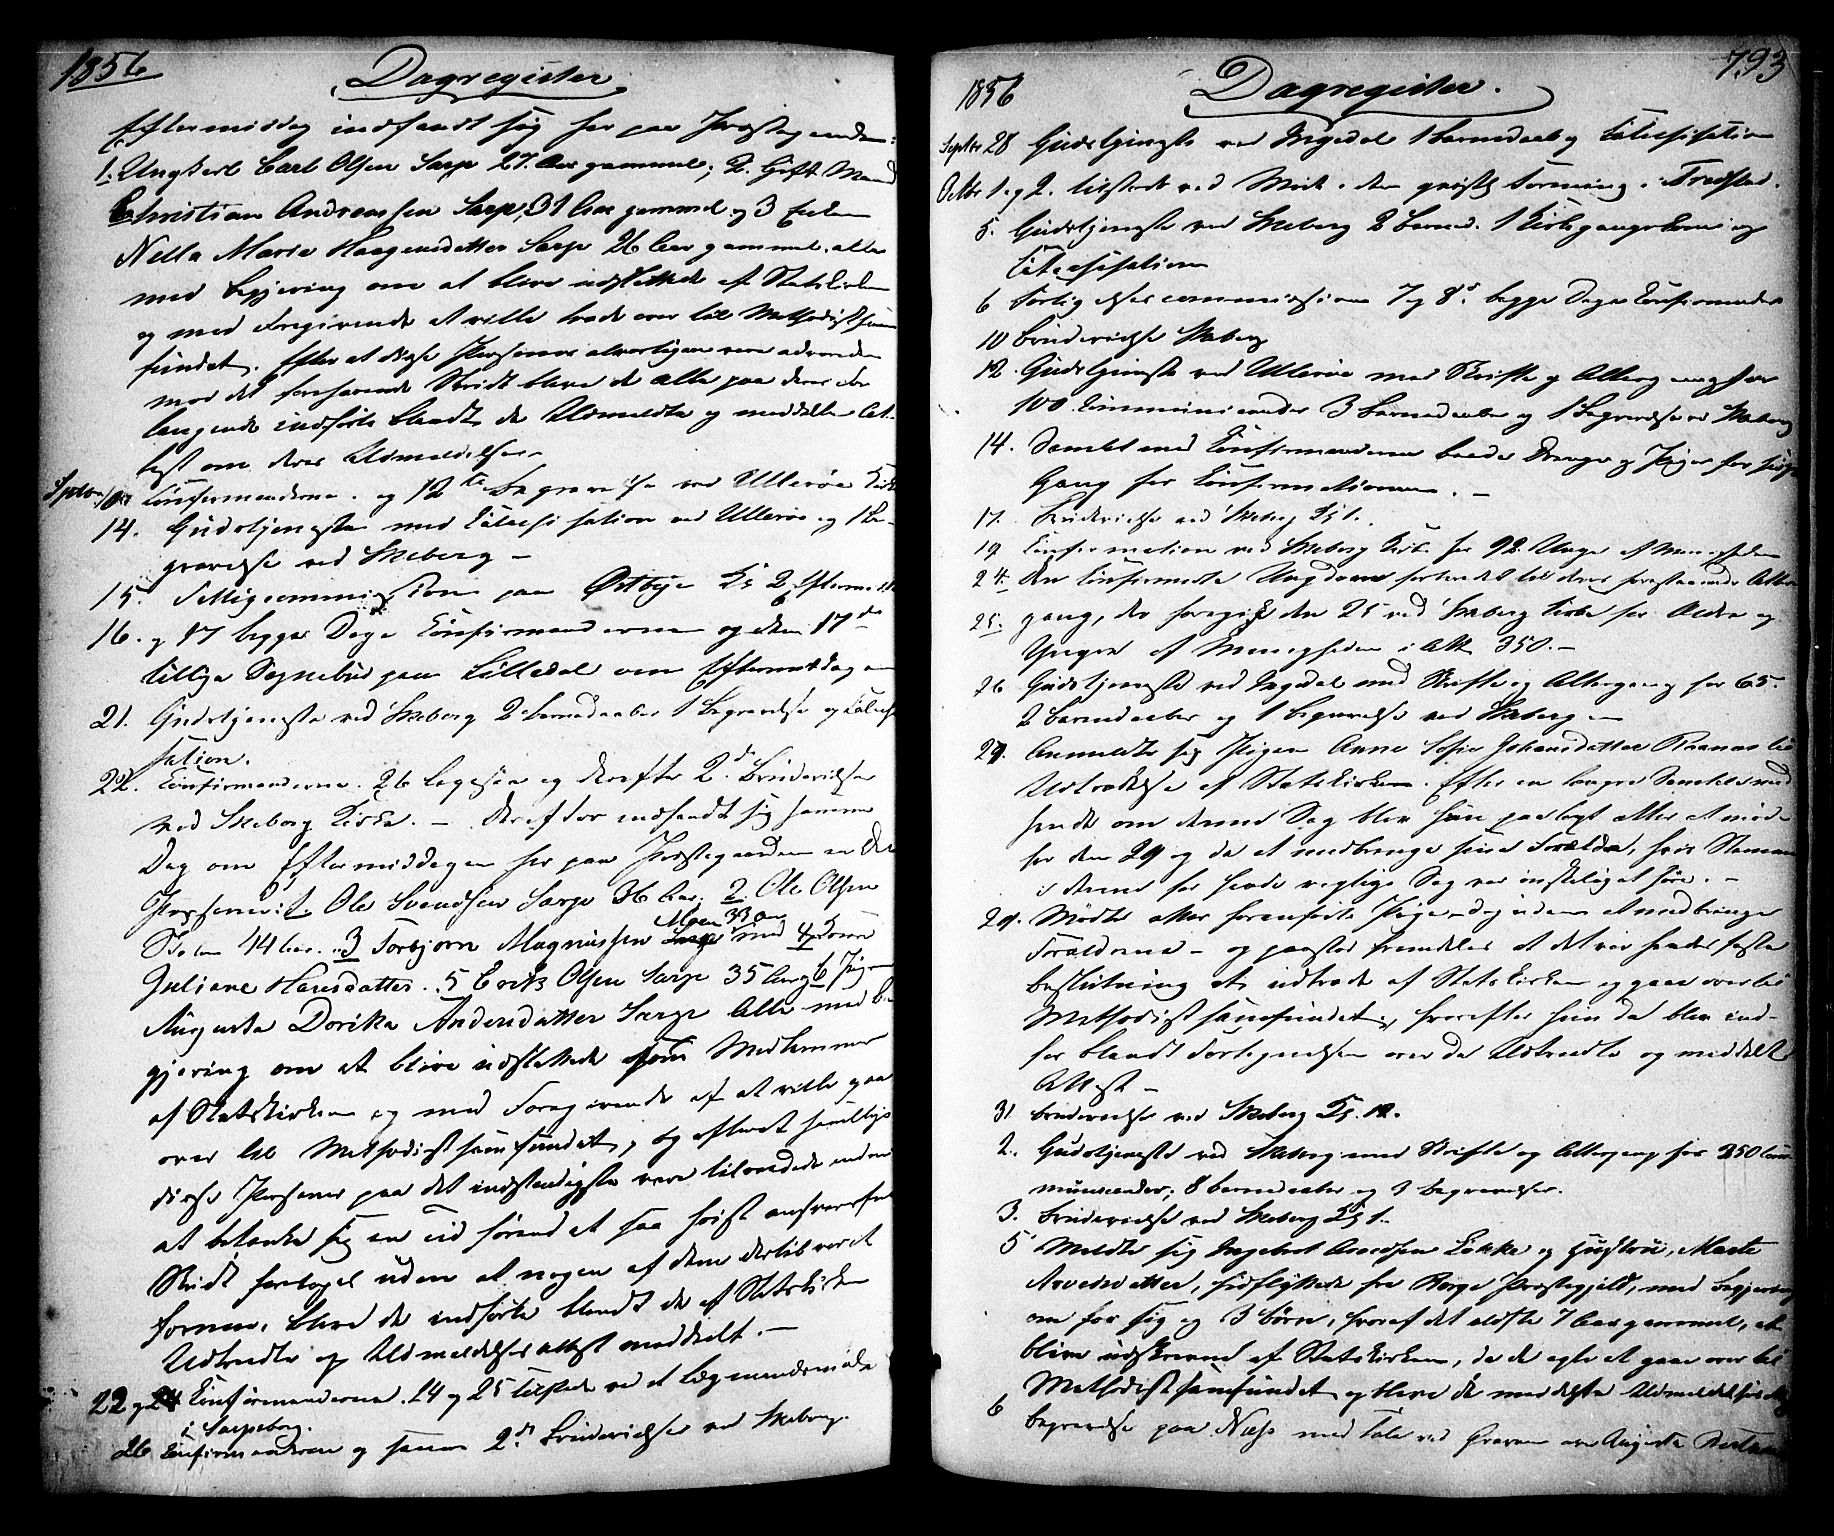 1856
Dagregister
Eftermiddag indfandt sig her paa Præstegaarden:
1. Ungkarl Carl Olsen Sarp 27 Aar gammel; 2. Gift Mand
Christian Andreassen Sarp, 31 Aar gammel og 3 Enken
Nella Maria Haagensdatter Sarp 26 Aar gammel. alle
med Begjering om at blive udslettede af Statskirken
og med Foregivende at ville træde over til Methodistsam
fundet. Efter at disse Personer alvorligen vare advarede
mod det forehavende Skridt bleve de alle paa deres For
langende indførte blandt de Udmeldte og meddelte At-
test om deres Udmeldelse.
Septbr Confirmanderne. og 12te Begravelse ved Ullerøe Kirke
14. Gudstjeneste med Catechisation ved Ullerøe og 1 Be-
gravelse ved Skeberg —
15. commission paa Østbye Kl 2 Eftermidd
16. og 17 begge Dage Confirmanderne og den 17de
tillige Sognebud paa Lilledal om Eftermiddagen
21. Gudstjeneste ved Skeberg 2 Barnedaaber 1 Begravelse og Catechi
sation.
22. Confirmanderne. 26 Læsere og derefter 2de Brudevielser
ved Skeberg Kirke. — Derefter indfandt sig samme
Dag om Eftermiddagen her paa Præstegaarden en Del
Personer: 1. Ole Svendsen Sarp 36 Aar; 2. Ole Olsen
44 Aar. 3 Torbjørn Magnussen Moen 33 Aar med 4 Konen
Juliane Hansdatter. 5 Erik Olsen Sarp 35 Aar og 6 Pigen
Augusta Dorika Andersdatter Sarp Alle med Be
gjering om at blive udslettede som Medlemmer
af Statskirken og med Foregivende af at ville gaa
over til Methodistsamfundet, og efterat samtlige
disse Personer paa det indstendigste vare tilraadede endnu
at betænke sig en Tid førend et saa høist ansvarsfuldt
Skridt foretoges uden at nogen af dem dertil været
fornem. bleve de indførte blandt de af Statskirken
Udtraadte og Udmeldelses attest meddelt. —
22 og 24 Confirmanderne. 24 og 25 tilstede ved et Lægmandsmøde
i Sarpsborg.
26 Confirmanderne og samme 2de Brudevielser ved Skeberg.
793
1856
Dagregister.
Septbr 28 Gudstjeneste ved Ingedal 1 Barnedaab og Catechisation
Octbr 1 og 2. tilstede ved Møde i den geistl. Forening i Fredstad.
5. Gudstjeneste ved Skeberg 2 Barned. 1 Kirkegangskone og
Catechisation
6 Forligelsescommission 7 og 8de begge Dage Confirmander
10 Brudevielse Skeberg
12. Gudstjeneste ved Ullerøe med Skrifte og Altergang for
100 Communicander 3 Barnedaaber og 1 Begravelse ved Skeberg
14. Samlet med Confirmanderne baade Drenge og Piger for sidste
Gang før Confirmationen. —
17. Brudevielse ved Skeberg Kl 1.
19 Confirmation ved Skeberg Kirke for 92 Unge af Menigheden
24. den Confirmerte Ungdom forberedt til deres forestaaende Alter
25. gang, der foregik den 25 ved Skeberg Kirke for Ældre og
Yngre af Menigheden i Alt 350. —
26 Gudstjeneste ved Ingedal med Skrifte og Altergang for 65.
2 Barnedaaber og 1 Begravelse ved Skeberg —
27. Anmeldte sig Pigen Anne Sofie Johansdatter til
Udtrædelse af Statskirken. Efter en længre Samtale med
hende om denne Sag blev hun paalagt atter at møde
for den 29 og da at medbringe sine Forældre, hvis Stemme
i denne for hende vigtige Sag var ønskeligt at høre. —
29. Mødte atter forannævnte Pige — dog uden at medbringe
Forældrene — og paastod fremdeles at det var hendes faste
beslutning at udtræde af Statskirken og gaae over til
Methodistsamfundet, hvorefter hun da blev ind-
ført blandt Fortegnelsen over de Udtraadte og meddelt
Attest —
31 Brudevielse ved Skeberg Kl. 12.
2. Gudstjeneste ved Skeberg med Skrifte og Altergang for 250 Com
municander; 8 Barnedaaber og 3 Begravelser.
3. Brudevielse ved Skeberg Kl 1.
5 Meldte sig Ingebret Arvesen Løkke og Hustru, Marte
Arvesdatter, hidflyttede fra Borge Præstegjeld, med Begjering
om for sig og 3 Børn, hvoraf det ældste 7 Aar gammel, at
blive udskrevne af Statskirken, da de agte at gaae over til
Methodistsamfundet og bleve de meddelte Udmeldelses Attest
6 Begravelse paa Næss med Tale ved Graven over Augusta